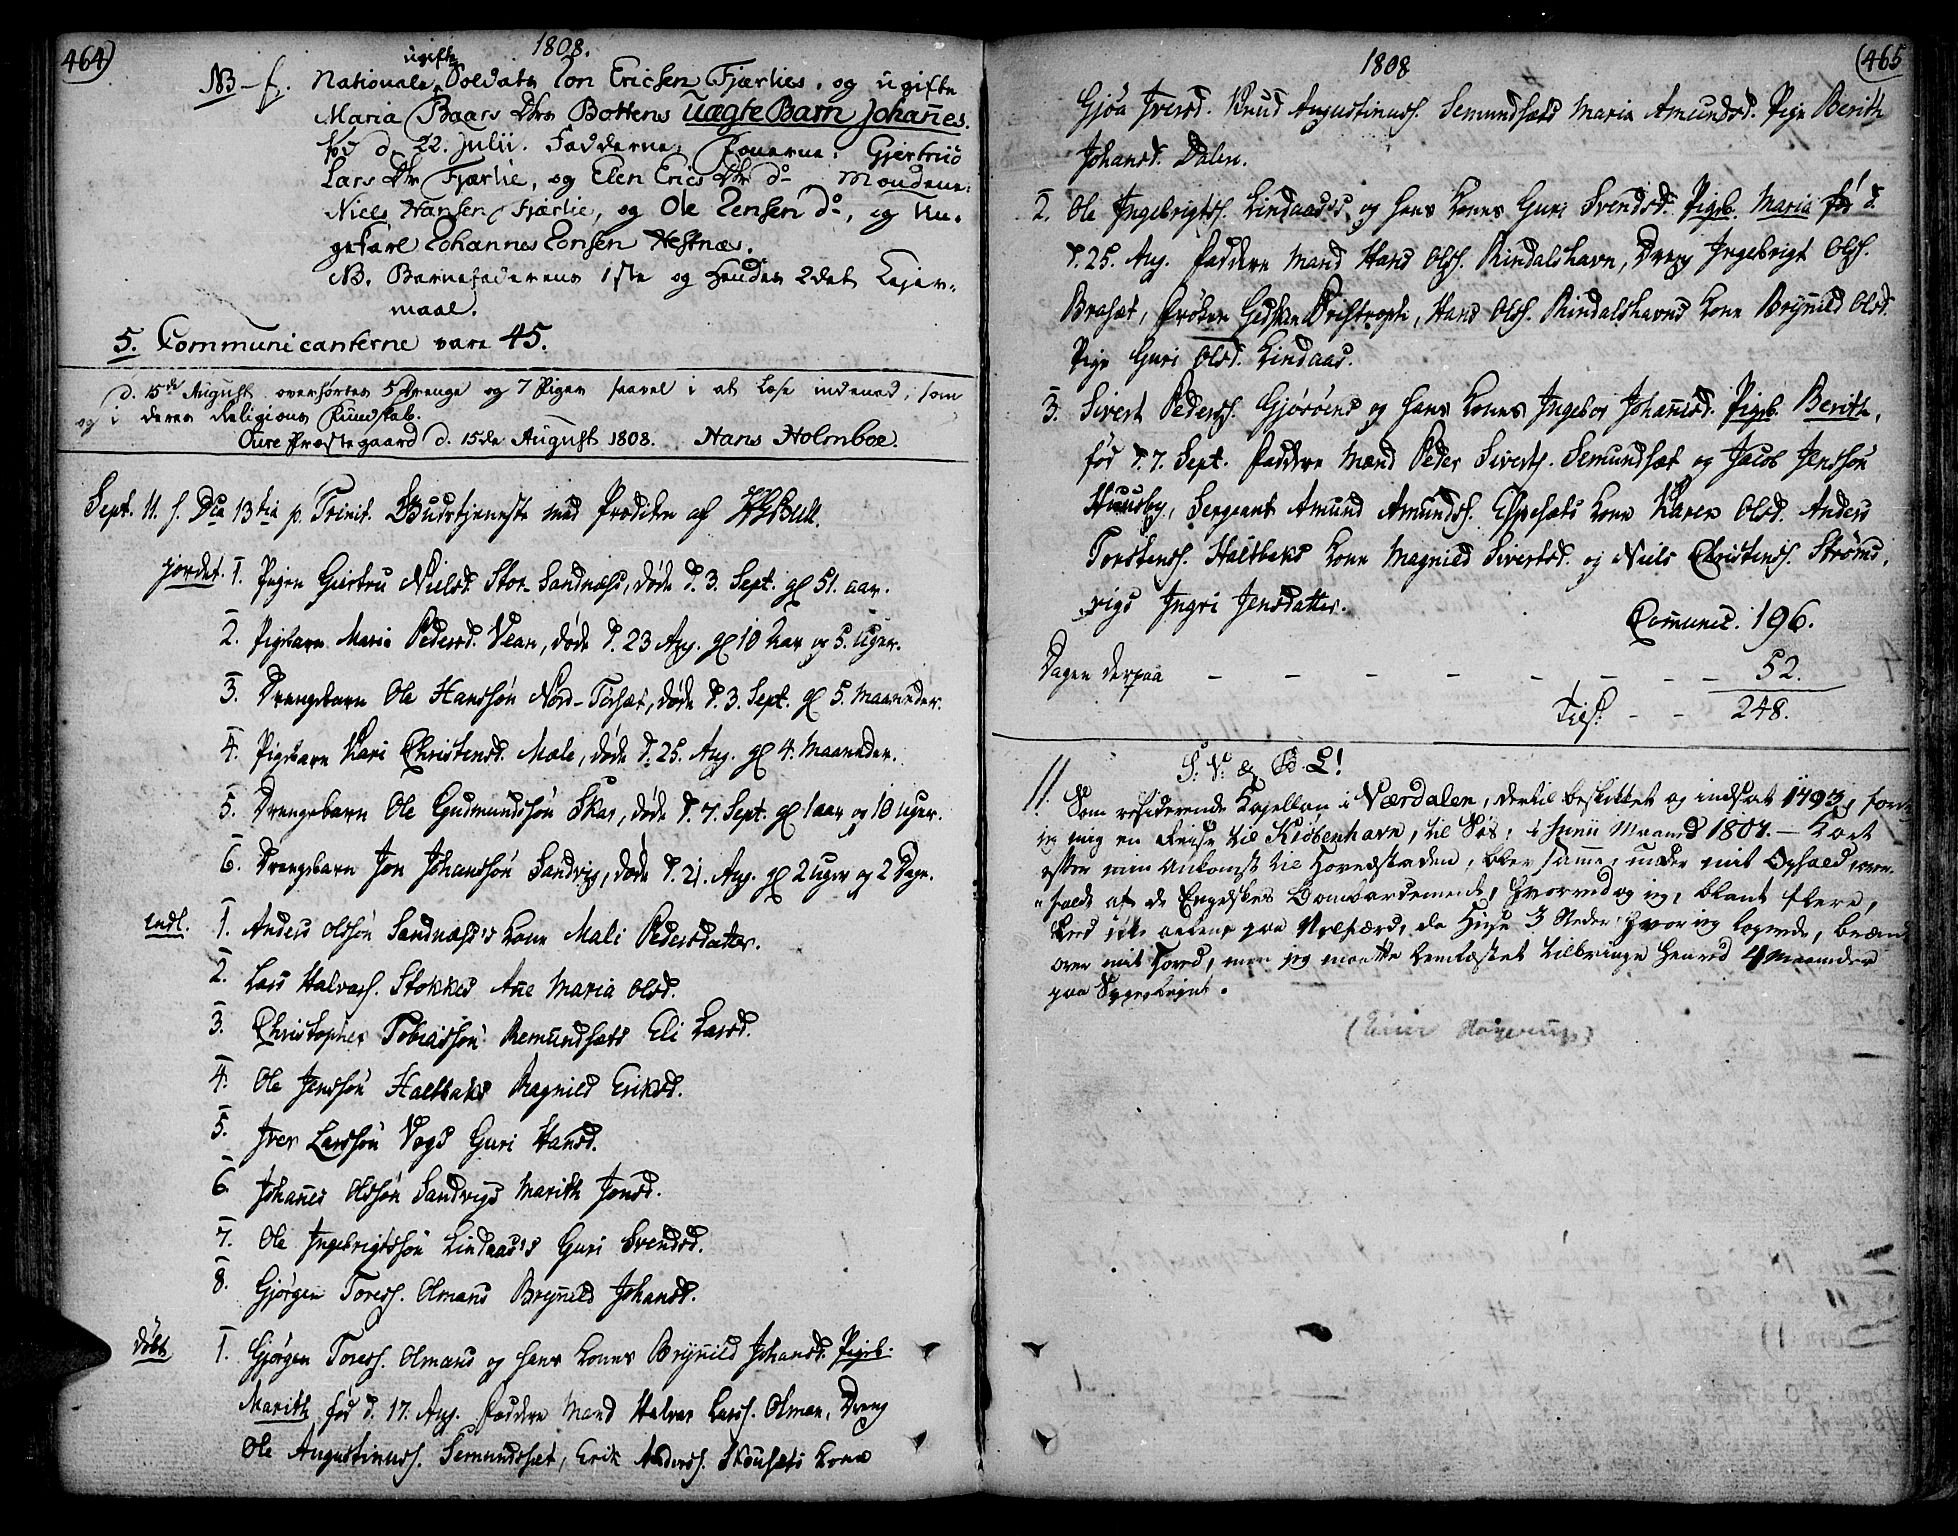 464)
1808.
ugifte
NB - f. Nationale Soldats Jon Ericsen Fjærlies, og ugifte
Maria Baars Dtrs Bottens Uægte Barn Johan̄es.
fød d. 22. Julii. Fadderne: Konerne: Giertrud
Lars Dtr Fjærlie, og Elen Erics Dtr do Mændene:
Niels Hansen Fjærlie, og Ole Jensen do, og Un-
gekarl Johannes Jonsen Hestnæs.
NB. Barnefaderens 1ste og Hendes 2det Lejer-
maal.
5. Communicanterne vare 45.
d. 15de August overhørtes 5 Drenge og 7 Piger saavel i at læse indenad, som
og i deres Religions Kundskab.
Oure Præstegaard d. 15de August 1808. Hans Holmboe.
Sept. 11. f. Dca 13tia p. Trinit. Gudstjeneste med Prædiken af HGBull.
jordet. 1. Pigen Giertru Nielsd. Stor-Sandnæss, døde d. 3. Sept. gl 51. aar.
2. Pigebarn Maria Pedersd. Vean, døde d. 23 Aug. gl 10 Aar og 5. Uger.
3. Drengebarn Ole Hanssøn Nord-Torset, døde d. 3. Sept. gl 5. Maaneder.
4. Pigebarn Kari Christensd. Mæle, døde d. 25. Aug. gl 4. Maaneder.
5. Drengebarn Ole Gudmundssøn Skar, døde d. 7. Sept. gl 1 aar og 10 uger.
6. Drengebarn Jon Johanssøn Sandvig, døde d. 21. Aug. gl 2 uger og 2 Dage.
Indl. 1. Anders Olssøn Sandnæss's Kone Mali Pedersdatter.
2. Lars Halvors. Stokkes An̄e Maria Olsd.
3. Christopher Tobiassøn Remundsæts Eli Larsd.
4. Ole Jenssøn Haltbaks Ragnild Eriksd.
5. Iver Larssøn Vogs Guri Hansd.
6. Johan̄es Olssøn Sandvigs Marith Jonsd.
7. Ole Ingebrigtssøn Lindaas's Guri Svendsd.
8. Gjørgen Tores. Olmans Bryn̄ild Johansd.
døbt 1. Gjørgen Tores. Olmans og hans Kones Bryn̄ild Johansd. Pigeb.
Marith fød d. 17. Aug. Faddere Mand Halvor Larss. Olman, Dreng
Ole Augustinuss. Semundsæt, Erik Anderss. Skousets Kone
1808
(465
Gjøa Iversd. Knud Augustinuss. Semundsæts Maria Amundsd. Pige Berith
Johansd. Dalen.
2. Ole Ingebrigts. Lindaas's og hans Kones Guri Svendsd. Pigeb. Maria fød
d. 25. Aug. Faddere Mand Hans Ols. Rindalshavn, Dreng Ingebrigt Ols.
Brasæt, Frøken Gidsken Christropti, Hans Ols. Rindalshavns Kone Bryn̄ild Olsd.
Pige Guri Olsd. Lindaas.
3. Sivert Peders. Gjørøens og hans Kones Ingebor Johan̄isd. Pigeb. Berith,
fød d. 7. Sept. Faddere Mænd Peder Siverts. Semundsæt og Jacob Jenssøn
Huusby, Sergeant Amund Amunds. Espesæts Kone Karen Olsd. Anders
Torstens. Haltbaks Kone Magnild Sivertsd. og Niels Christens. Strøms-
vigs Ingri Jensdatter.
Com̄unic. 196.
Dagen derpaa - - - - - - - - 52.
Tils: - - 248.
S: V: & B. L!
11. Som residerende Kapellan i Værdalen, dertil beskikket og indsat 1793, fore-
tog jeg mig en Reise til Kiøbenhavn, til Søs, i Junii Maaned 1807. - Kort
efter min Ankomst til Hovedstaden, blev samme, under mit Ophold, over-
faldt af de Engelskes Bombardement, hvorved og jeg, blant flere,
leed ikke alene paa Velfærd, da Huse 3 Steder hvor jeg logerede, brændte
over mit Hoved, men jeg maatte kemlæstet tilbringe henved 4 Maaneder
paa Sygesengen.
(Einer Hagerup)